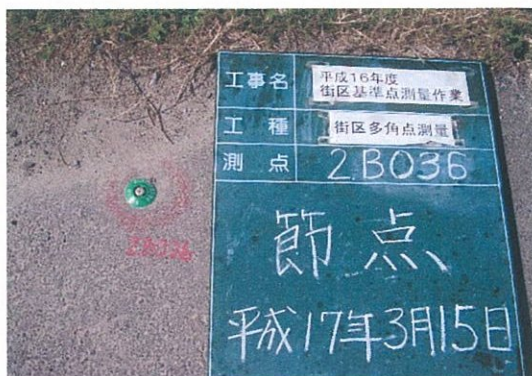 工事名 平成16年度
街区基準点測量作業
工種 街区多角点測量
測点 2B036
節点
平成17年3月15日
2B036